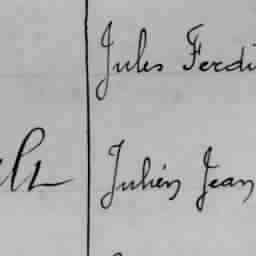 Jules Ferdi
Julien Jean